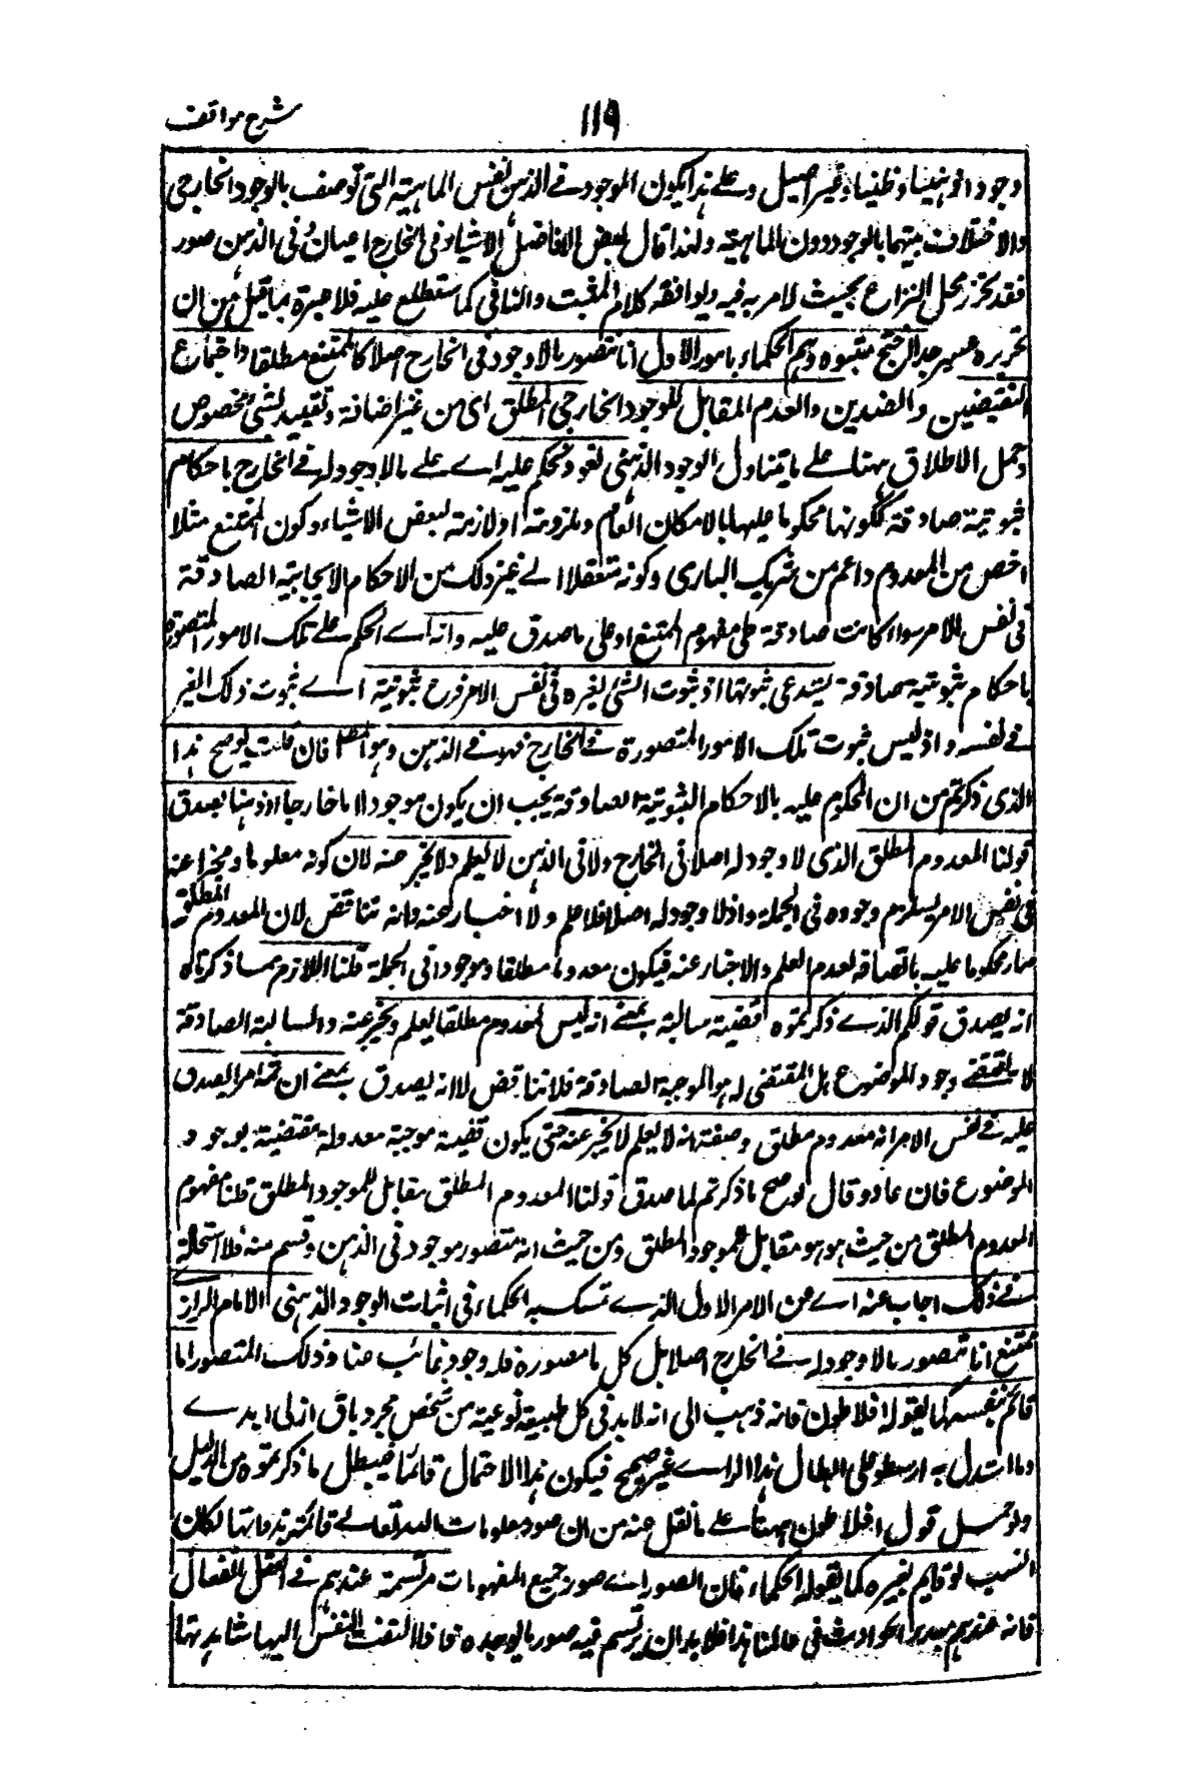 شرح مواقف
١١٩
وجودا ذهنيا وظليا وغير اصيل وعلى هذا يكون الموجود فى الذهن نفس الماهية التى توصف بالوجود الخارجى
والاختلاف بينهما بالوجود دون الماهية ولهذا قال بعض الافاضل الاشياء فى الخارج اعيان وفى الذهن صور
فقد تحرر محل النزاع بحيث لا مرية فيه ويوافقه كلام المثبت والنافى كما ستطلع عليه فلا عبرة بما قيل من ان
تحريره عسير جدا احتج مثبتوه وهم الحكماء بامور الاول انا نتصور ما لا وجود له فى الخارج اصلا كالممتنع مطلقا واجتماع
النقيضين والضدين والعدم المقابل للوجود الخارجى المطلق اى من غير اضافة وتقييد بشئ مخصوص
وحمل الاطلاق ههنا على ما يتناول الوجود الذهنى لغو ونحكم عليه اے على ما لا وجود له فى الخارج باحكام
ثبوتية صادقة ككونها محكوما عليها بالامكان العام وملزومة او لازمة لبعض الاشياء وكون الممتنع مثلا
اخص من المعدوم واعم من شريك البارى وكونه متعقلا الى غير ذلك من الاحكام الايجابية الصادقة
فى نفس الامر سواء كانت صادقة على مفهوم الممتنع او على ما صدق عليه وانه اے الحكم على تلك الامور المتصورة
باحكام ثبوتية صادقة يستدعى ثبوتها اذ ثبوت الشئ لغيره فى نفس الامر فرع ثبوتية اے ثبوت ذلك الغير
فى نفسه واذ ليس ثبوت تلك الامور المتصورة فى الخارج فهو فى الذهن وهو المط فان قلت لو صح هذا
الذى ذكرتم من ان المحكوم عليه بالاحكام الثبوتية الصادقة يجب ان يكون موجودا اما خارجا او ذهنا لصدق
قولنا المعدوم المطلق الذى لا وجود له اصلا فى الخارج ولا فى الذهن لا يعلم ولا يخبر عنه لان كونه معلوما ومخبرا عنه
فى نفس الامر يستلزم وجوده فى الجملة واذ لا وجود له اصلا فلا علم ولا اخبار عنه وانه تناقض لان المعدوم المطلق قد
صار محكوما عليه باتصافه بعدم العلم والاخبار عنه فيكون معدوما مطلقا وموجودا فى الجملة قلنا اللازم مما ذكرناه
انه يصدق قولكم الذے ذكرتموه قضية سالبة بمعنى انه ليس المعدوم مطلقا يعلم ويخبر عنه والسالبة الصادقة
لا يقتضے وجود الموضوع بل المقتضى له هو الموجبة الصادقة فلا تناقض لا انه يصدق بمعنى ان ثمة امر يصدق
عليه فى نفس الامر انه معدوم مطلق وصفته انه لا يعلم لا يخبر عنه حتى يكون قضية موجبة معدولة مقتضية لوجود
الموضوع فان عاد وقال لو صح ما ذكرتم لما صدق قولنا المعدوم المطلق مقابل للموجود المطلق قلنا مفهوم
المعدوم المطلق من حيث هو هو مقابل للموجود المطلق ومن حيث انه متصور موجود فى الذهن وقسم منه فلا استحالة
فى ذلك اجاب عنه اے عن الامر الاول الذے تمسك به الحكماء فى اثبات الوجود الذهنى الامام الرازے
بمنع انا نتصور ما لا وجود له فى الخارج اصلا بل كل ما نتصوره فله وجود غائب عنا وذلك المتصور اما
قائم بنفسه كما يقوله افلاطون فانه ذهب الى انه لا بد فى كل طبيعة نوعية من شخص مجرد باق ازلى ابدے
وما استدل به ارسطو على ابطال هذا الراے غير صحيح فيكون هذا الاحتمال قائما فيبطل ما ذكرتموه من الدليل
ولو حمل قول افلاطون ههنا على ما نقل عنه من ان صور معلومات الله تعالے قائمة بذواتها لكان
انسب او قائم بغيره كما يقوله الحكماء فان الصور اے صور جميع المفهومات مرتسمة عندهم فى العقل الفعال
فانه عندهم مبدأ الحوادث فى عالمنا هذا فلا بد ان يرتسم فيه صور ما يوجده فاذا التفت النفس اليها شاهدتها